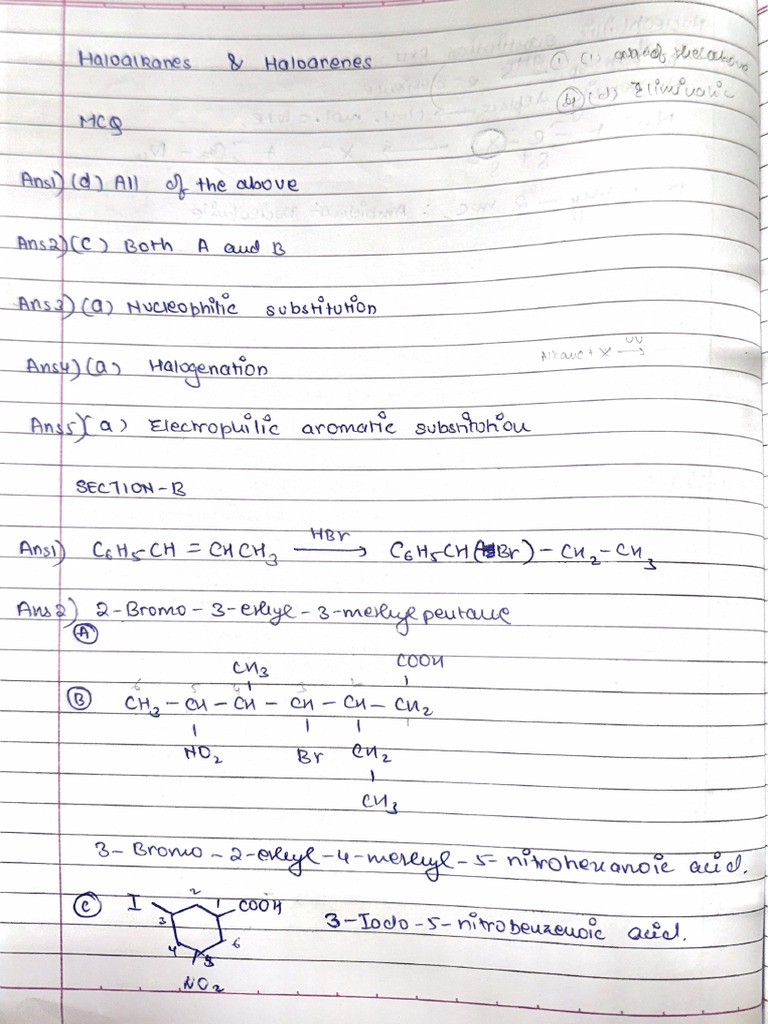 Haloalkanes & Haloarenes
MCQ
Ans1) (d) All of the above
Ans2) (c) Both A and B
Ans3) (a) Nucleophilic substitution
Ans4) (a) Halogenation
Alkane + X UV →
Ans5) (a) Electrophilic aromatic substitution
SECTION-B
Ans1) C6H5CH = CHCH3 HBr → C6H5CH(Br) - CH2 - CH3
Ans2) 2-Bromo-3-ethyl-3-methylpentane
(A)
CH3 COOH
(B) 6 5 4 3 2 1
CH3 - CH - CH - CH - CH - CH2
NO2 Br CH2
CH3
3-Bromo-2-ethyl-4-methyl-5-nitrohexanoic acid.
(C) I 2 1 COOH 3-Iodo-5-nitrobenzenoic acid.
3 6
4 5
NO2